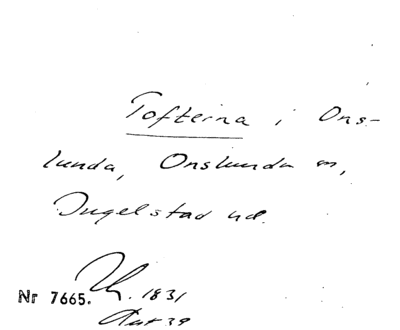 Tofterna i Ons-
lunda, Onslunda sn,
Ingelstad hd.
Nr 7665. 1831